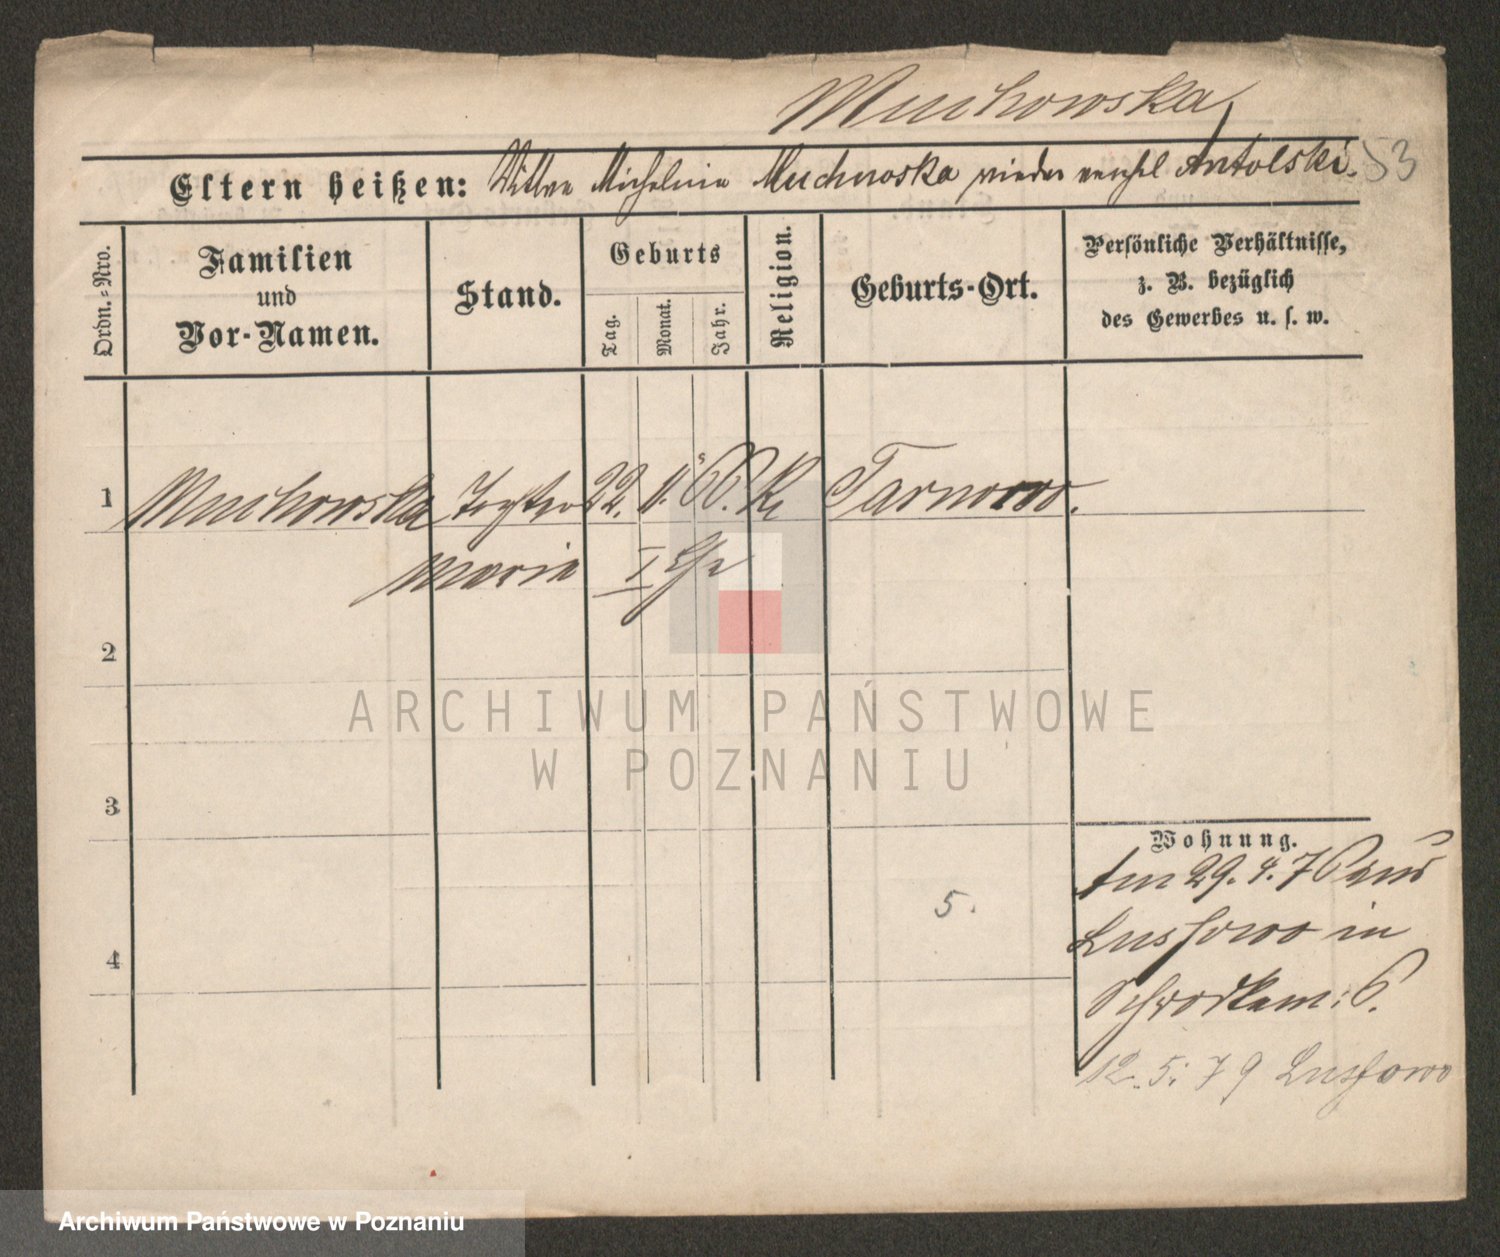 Muchowska
Eltern heißen: Wittwe Michalina Muchowska wieder verehl Antolski. 53
Ordn.-Nro.
Familien
und
Vor-Namen.
Stand.
Geburts
Tag.
Monat.
Jahr.
Religion.
Geburts-Ort.
Persönliche Verhältnisse,
z. B. bezüglich
des Gewerbes u. s. w.
1 Muchowska Tochter 22. 11. 66. K. Tarnowo.
Maria I Ehe
2
3
4
5.
Wohnung.
Am 29. 4. 76 aus
Lussowo in
Schrodkam: 6.
12. 5. 79 Lussowo
ARCHIWUM PAŃSTWOWE
W POZNANIU
Archiwum Państwowe w Poznaniu